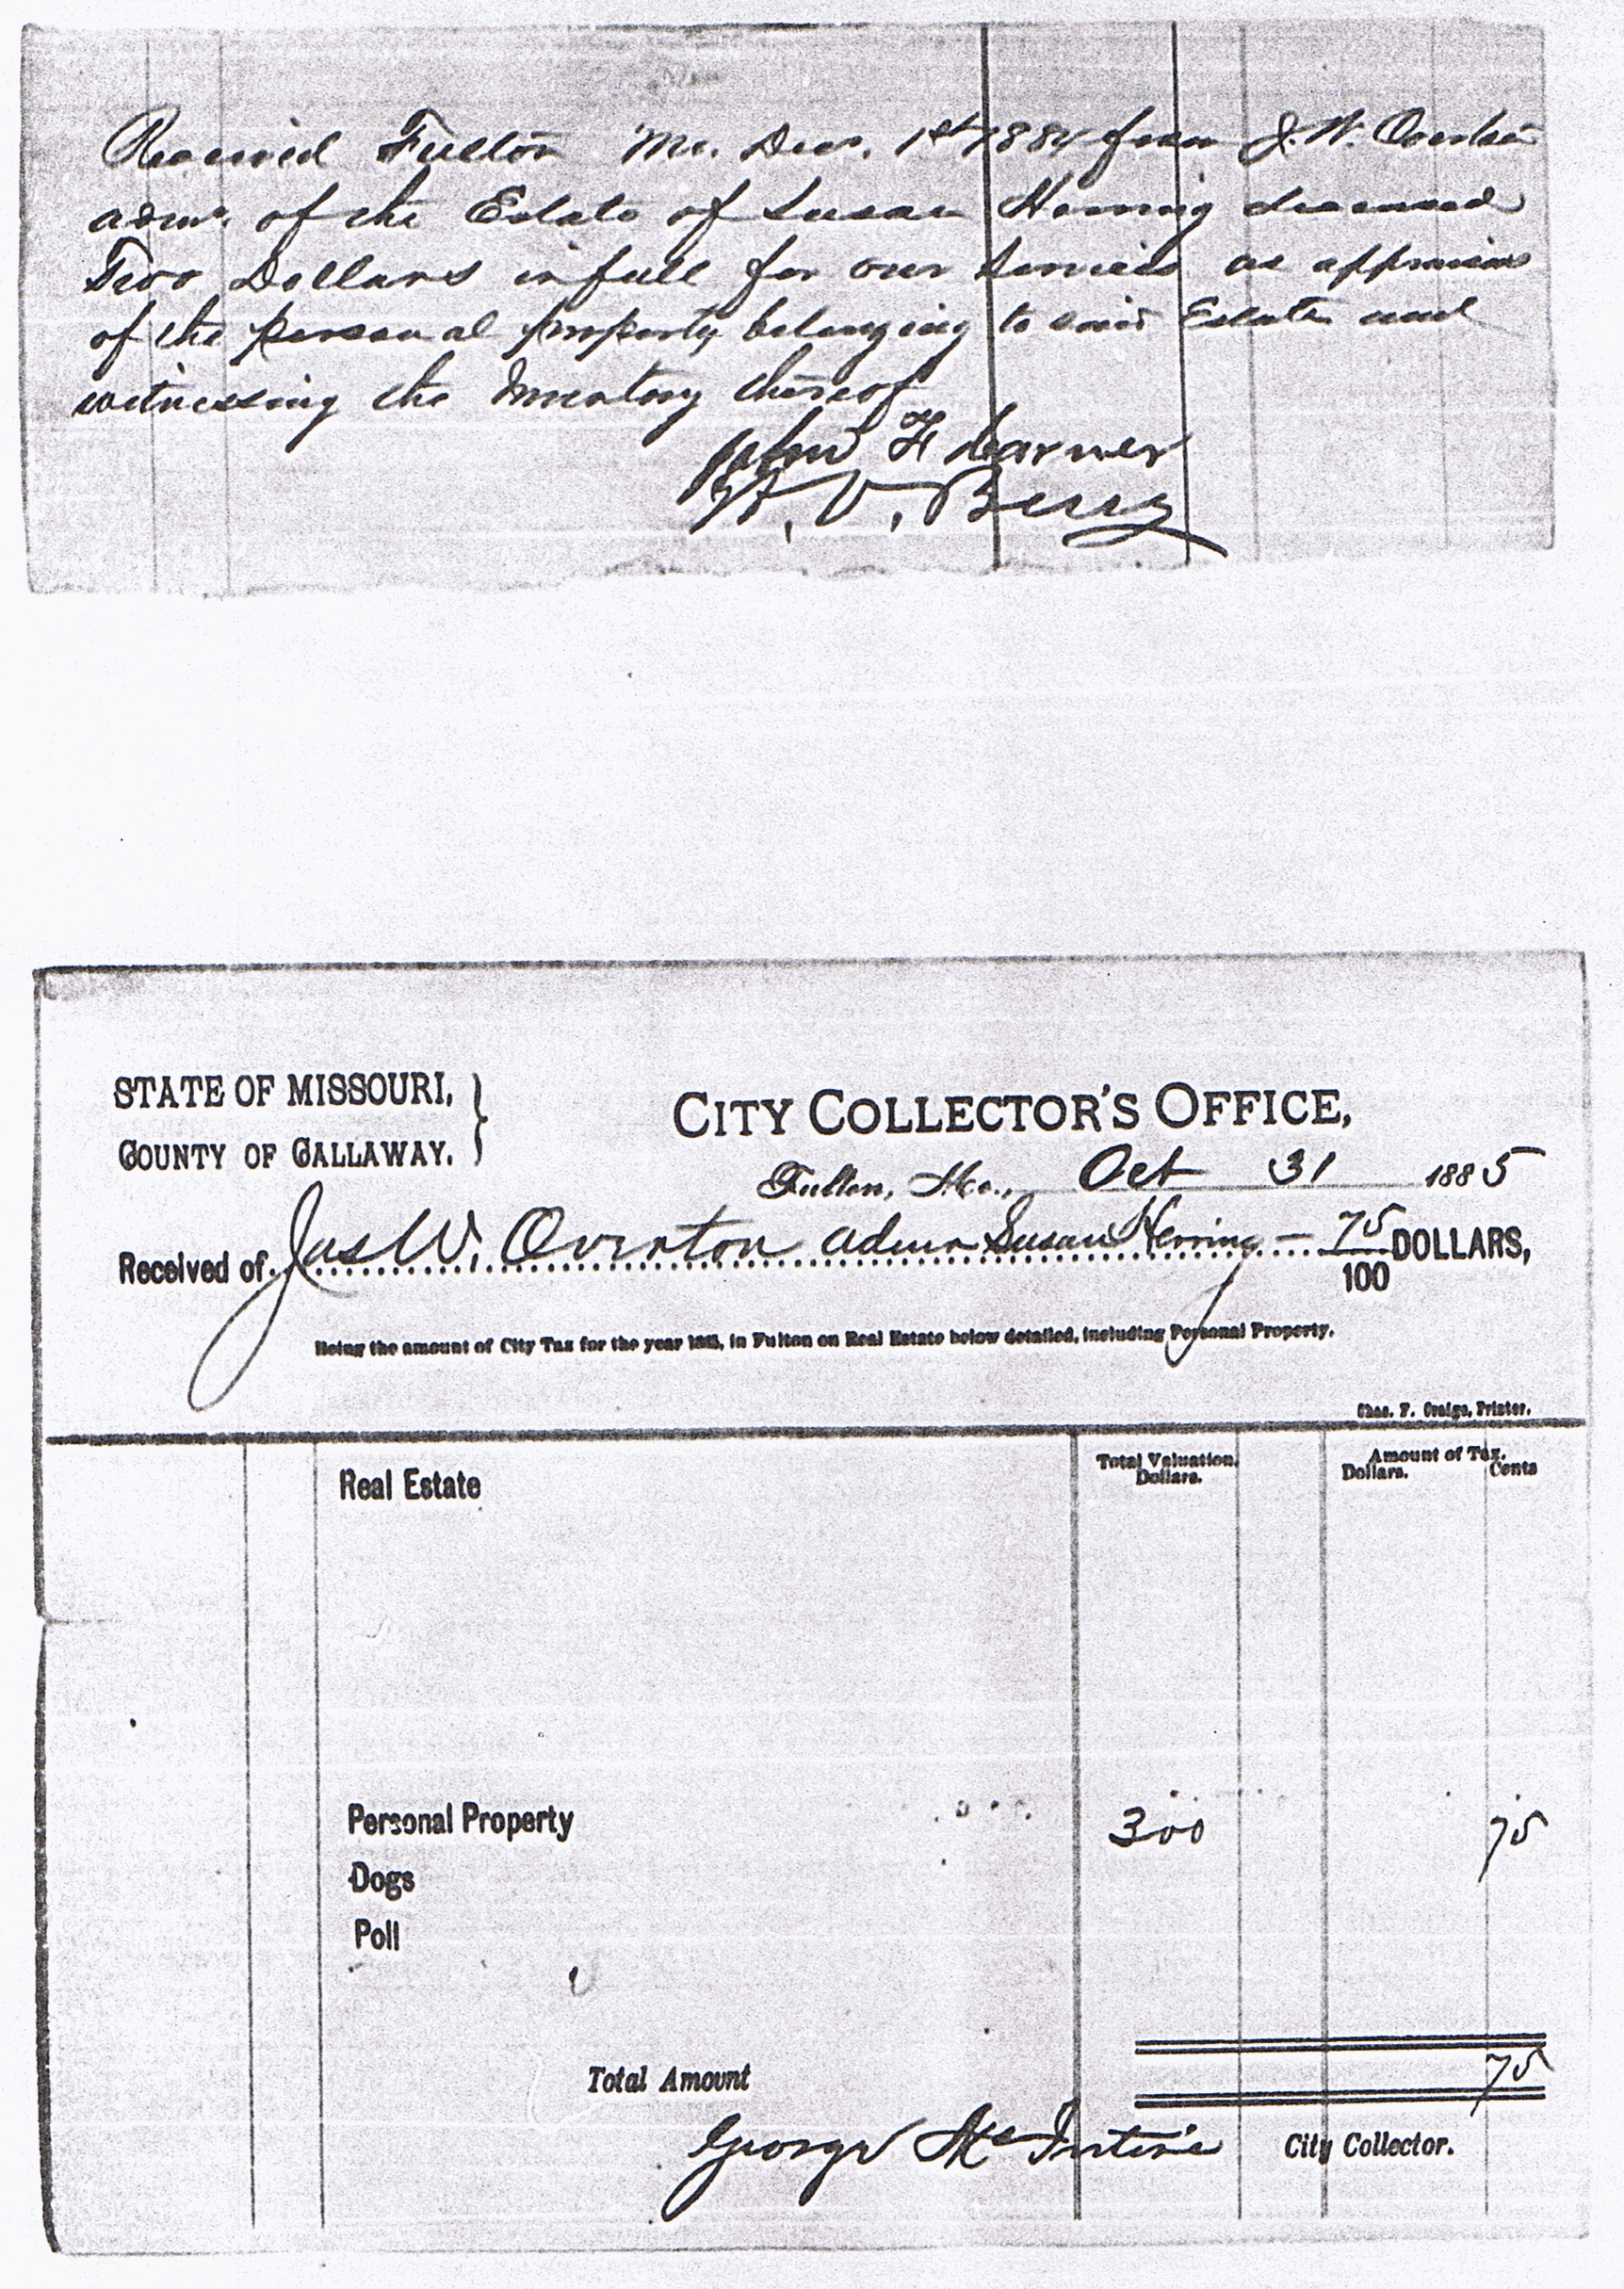 Received Fulton Mo. Dec. 1st 1884 from J. W. Overton
admr. of the Estate of Susan Herring deceased
Two Dollars in full for our services as appraisers
of the personal property belonging to said Estate and
witnessing the Inventory thereof
John F
W. V. Berry
STATE OF MISSOURI,
COUNTY OF CALLAWAY.
CITY COLLECTOR'S OFFICE,
Fulton, Mo., Oct 31 1885
Received of Jas W. Overton admr Susan Herring — 75/100 DOLLARS,
Being the amount of City Tax for the year 1885, in Fulton on Real Estate below detailed, including Personal Property.
Chas. F. Printer.
Real Estate
Total Valuation. Dollars.
Amount of Tax. Dollars. Cents
Personal Property 300 75
Dogs
Poll
Total Amount 75
George McIntire City Collector.